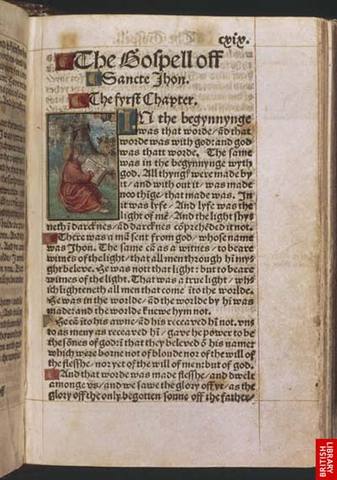 cxix.
The Gospell off
Sancte Jhon.
The fyrst Chapter.
IN the begynnynge
was that worde/ ād that
worde was with god: and god
was thatt worde. The same
was in the begynnynge wyth
god. All thyngs were made by
it/ and with out it/ was made
noo thīge/ that made was. In
it was lyfe/ And lyfe was the
light of mē/ And the light shyneth
neth ī darcknes/ ād darcknes cōprehēded it not.
There was a mā sent from god/ whose name
was Jhon. The same cā as a witnes/ to beare
witnes of the light/ that all men through hī myght
ght beleve. He was nott that light: but to beare
witnes of the light. That was a true light/ which
ich lighteneth all men that come īto the worlde.
He was in the worlde/ ād the worlde by hī was
made: and the worlde knewe hym not.
He cā īto his awne/ ād his receaved hī not. vns
to as meny as receaved hī/ gave he power to be
the sōnes of god: ī that they beleved ō his name:
which were borne not of bloude nor of the will of
the flesshe/ nor yet of the will of men: but of god.
And that worde was made flesshe/ and dwelt
amonge vs/ and we sawe the glory off yt/ as the
glory off the only begotten sonne off the father/
BRITISH
LIBRARY